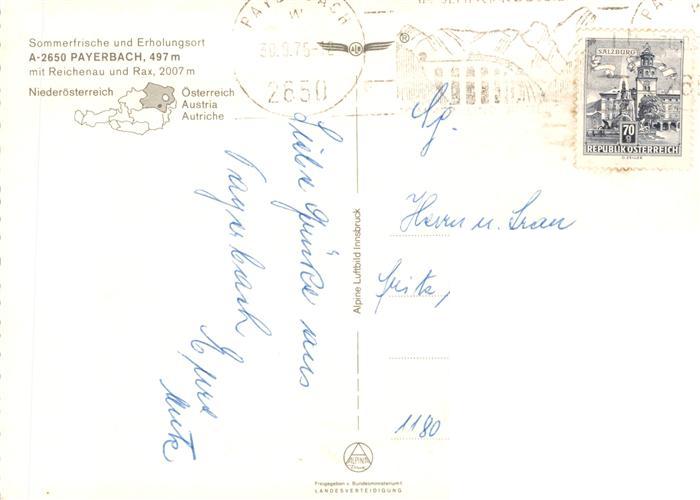 Sommerfrische und Erholungsort
A-2650 PAYERBACH, 497 m
mit Reichenau und Rax, 2007 m
Niederösterreich
Österreich
Austria
Autriche
PAYERBACH
30.9.75
2650
SALZBURG
70
REPUBLIK ÖSTERREICH
Sg.
Herrn u. Frau
1180
Liebe Grüße aus
Payerbach
Alpine Luftbild Innsbruck
ALPINA
Freigegeben v. Bundesministerium f.
LANDESVERTEIDIGUNG